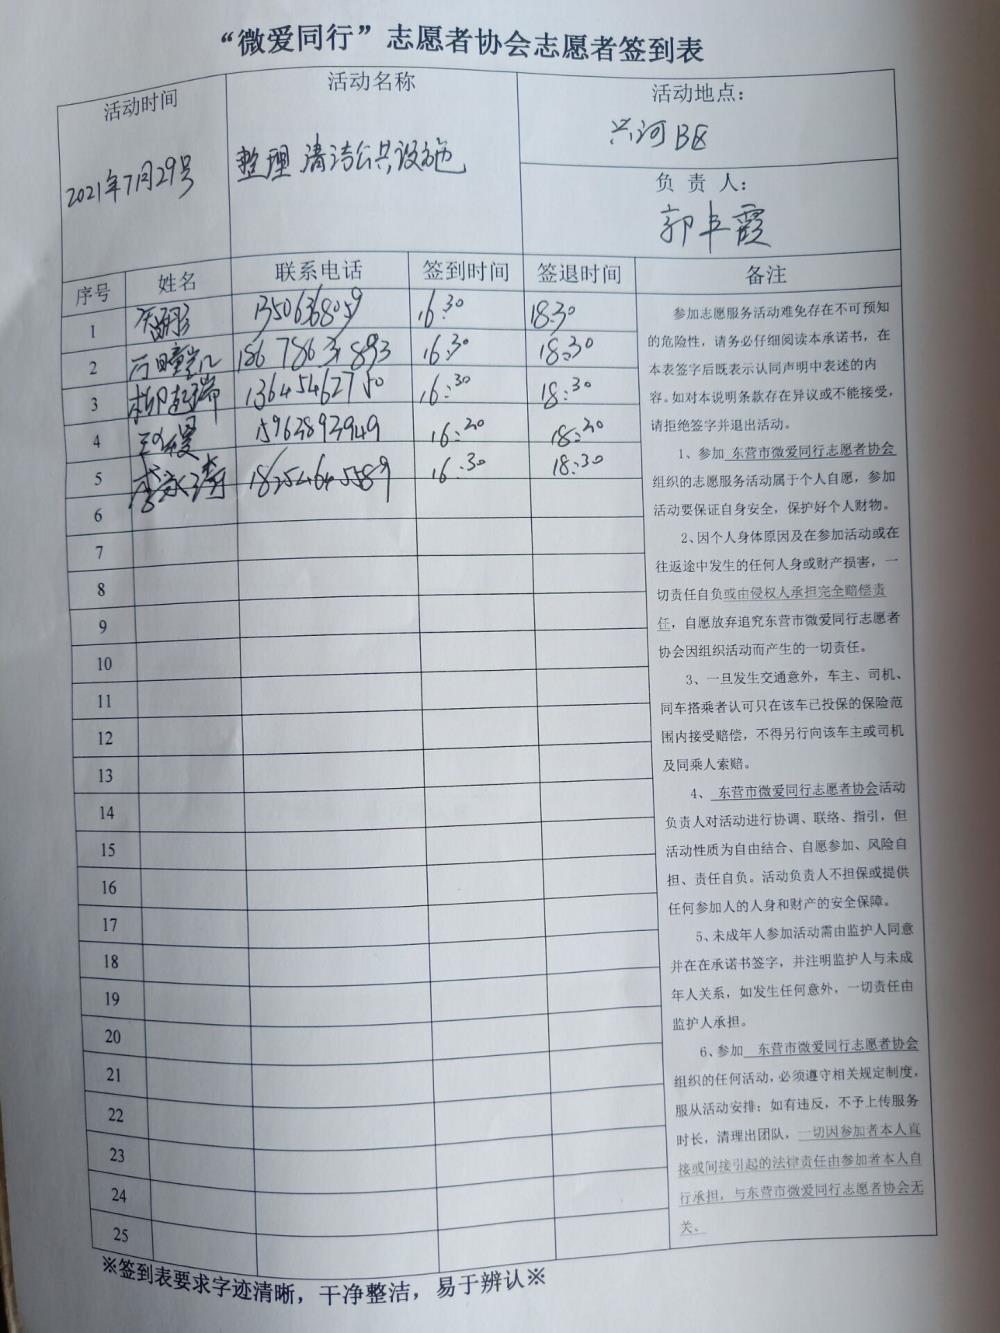 “微爱同行”志愿者协会志愿者签到表
活动时间
2021年7月29号
活动名称
整理 清洁公共设施
活动地点：
兴河B区
负 责 人：
郭 霞
序号 姓名 联系电话 签到时间 签退时间 备注
1 13506368059 16:30 18:30
2 18678631893 16:30 18:30
3 13645462750 16:30 18:30
4 15963893949 16:30 18:30
5 18254645589 16:30 18:30
6
7
8
9
10
11
12
13
14
15
16
17
18
19
20
21
22
23
24
25
参加志愿服务活动难免存在不可预知
的危险性，请务必仔细阅读本承诺书，在
本表签字后既表示认同声明中表述的内
容。如对本说明条款存在异议或不能接受，
请拒绝签字并退出活动。
1、参加 东营市微爱同行志愿者协会
组织的志愿服务活动属于个人自愿，参加
活动要保证自身安全，保护好个人财物。
2、因个人身体原因及在参加活动或在
往返途中发生的任何人身或财产损害，一
切责任自负或由侵权人承担完全赔偿责
任，自愿放弃追究东营市微爱同行志愿者
协会因组织活动而产生的一切责任。
3、一旦发生交通意外，车主、司机、
同车搭乘者认可只在该车已投保的保险范
围内接受赔偿，不得另行向该车主或司机
及同乘人索赔。
4、 东营市微爱同行志愿者协会活动
负责人对活动进行协调、联络、指引，但
活动性质为自由结合、自愿参加、风险自
担、责任自负。活动负责人不担保或提供
任何参加人的人身和财产的安全保障。
5、未成年人参加活动需由监护人同意
并在在承诺书签字，并注明监护人与未成
年人关系，如发生任何意外，一切责任由
监护人承担。
6、参加 东营市微爱同行志愿者协会
组织的任何活动，必须遵守相关规定制度，
服从活动安排；如有违反，不予上传服务
时长，清理出团队，一切因参加者本人直
接或间接引起的法律责任由参加者本人自
行承担，与东营市微爱同行志愿者协会无
关。
※签到表要求字迹清晰，干净整洁，易于辨认※